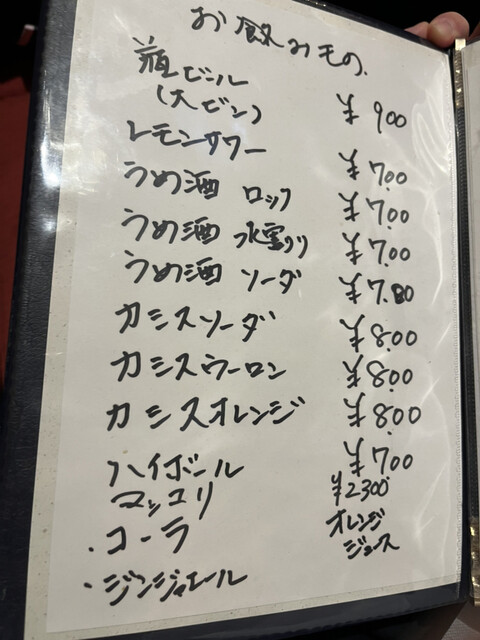 お飲みもの.
瓶ビール
(大ビン) ¥900
レモンサワー ¥700
うめ酒 ロック ¥700
うめ酒 水割り ¥700
うめ酒 ソーダ ¥780
カシスソーダ ¥800
カシスウーロン ¥800
カシスオレンジ ¥800
ハイボール ¥700
マッコリ ¥2300
・コーラ オレンジ
ジュース
・ジンジャエール